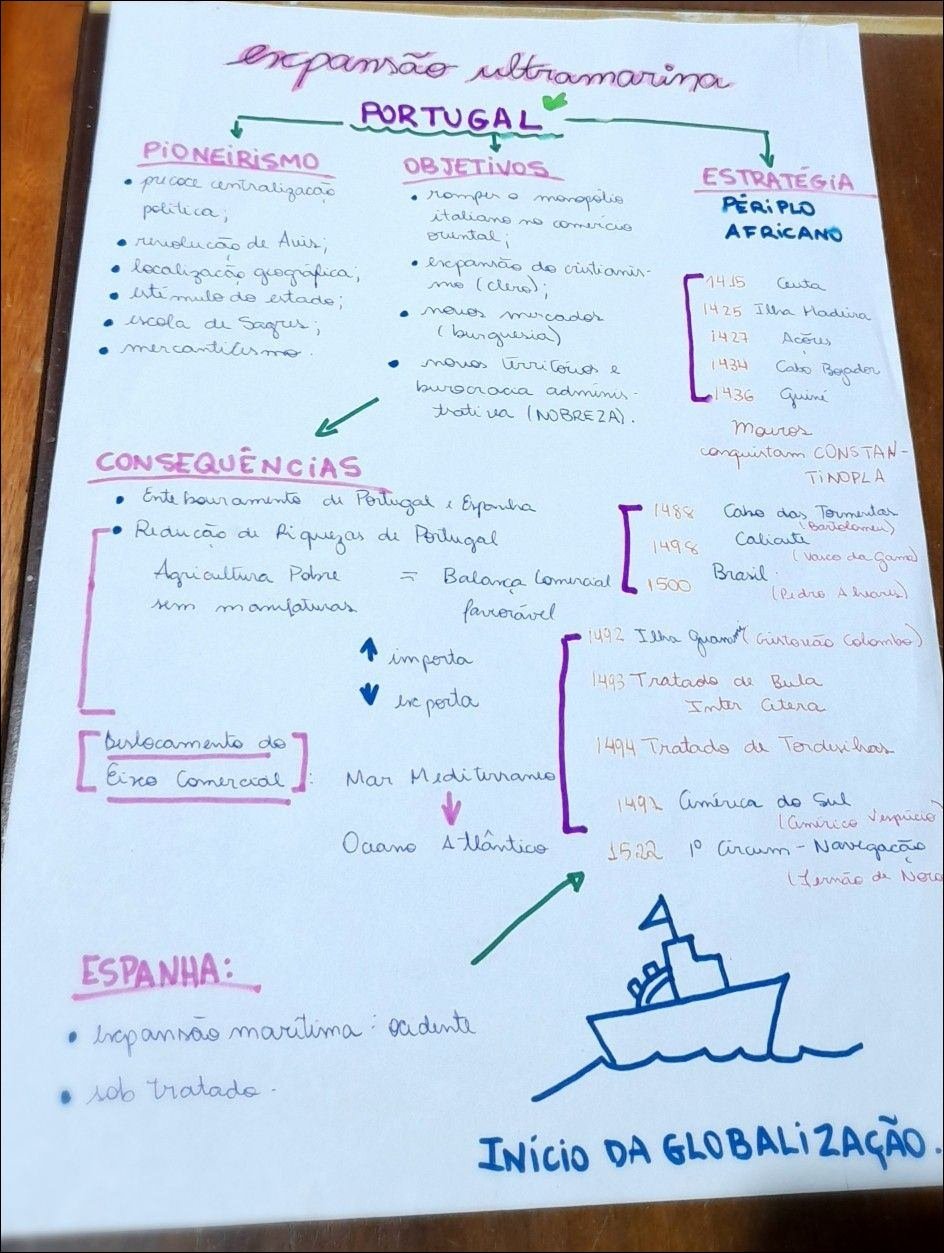 expansão ultramarina
PORTUGAL
PIONEIRISMO
• precoce centralização
política;
• revolução de Avis;
• localização geográfica;
• estímulo do estado;
• escola de Sagres;
• mercantilismo.
OBJETIVOS
• romper o monopólio
italiano no comércio
oriental;
• expansão do cristianis-
mo (clero);
• novos mercados
(burguesia)
• novos territórios e
burocracia adminis-
trativa (NOBREZA).
ESTRATÉGIA
PÉRIPLO
AFRICANO
1415 Ceuta
1425 Ilha Madeira
1427 Açores
1434 Cabo Bojador
1436 Guiné
Mouros
conquistam CONSTAN-
TINOPLA
1488 Cabo das Tormentas
(Bartolomeu)
1498 Calicute
(Vasco da Gama)
1500 Brasil.
(Pedro Alvares)
1492 Ilha (Cristovão Colombo)
1493 Tratado de Bula
Inter Cetera
1494 Tratado de Tordesilhas
América do Sul
(Américo Vespúcio)
1522 1º Circum-Navegação
(Fernão de Noro
CONSEQUÊNCIAS
• de Portugal e Espanha
• Redução de Riquezas de Portugal
Agricultura Pobre = Balança Comercial
sem manufaturas favorável
↑ importa
↓ exporta
[Deslocamento do
Eixo Comercial]: Mar Mediterraneo
↓
Oceano Atlântico
ESPANHA:
• expansão marítima: ocidente
• sob tratado.
INÍCIO DA GLOBALIZAÇÃO.